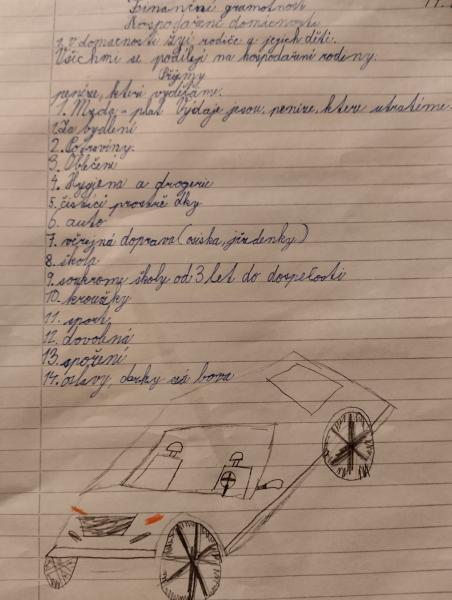 Finanční gramotnost
Hospodaření domácnosti
V domácnosti žijí rodiče a jejich děti.
Všichni se podílejí na hospodaření rodiny.
Příjmy
peníze, které vyděláme.
1. Mzda - plat Výdaje jsou peníze, které utratíme.
1. Za bydlení
2. Potraviny.
3. Oblečení
4. Hygiena a drogerie
5. čistící prostře dky
6. auto
7. veřejná doprava (jízdenky)
8. škola
9. soukromé školy od 3 let do dospělosti
10. kroužky
11. sport
12. dovolená
13. spoření
14. oslavy, dárky